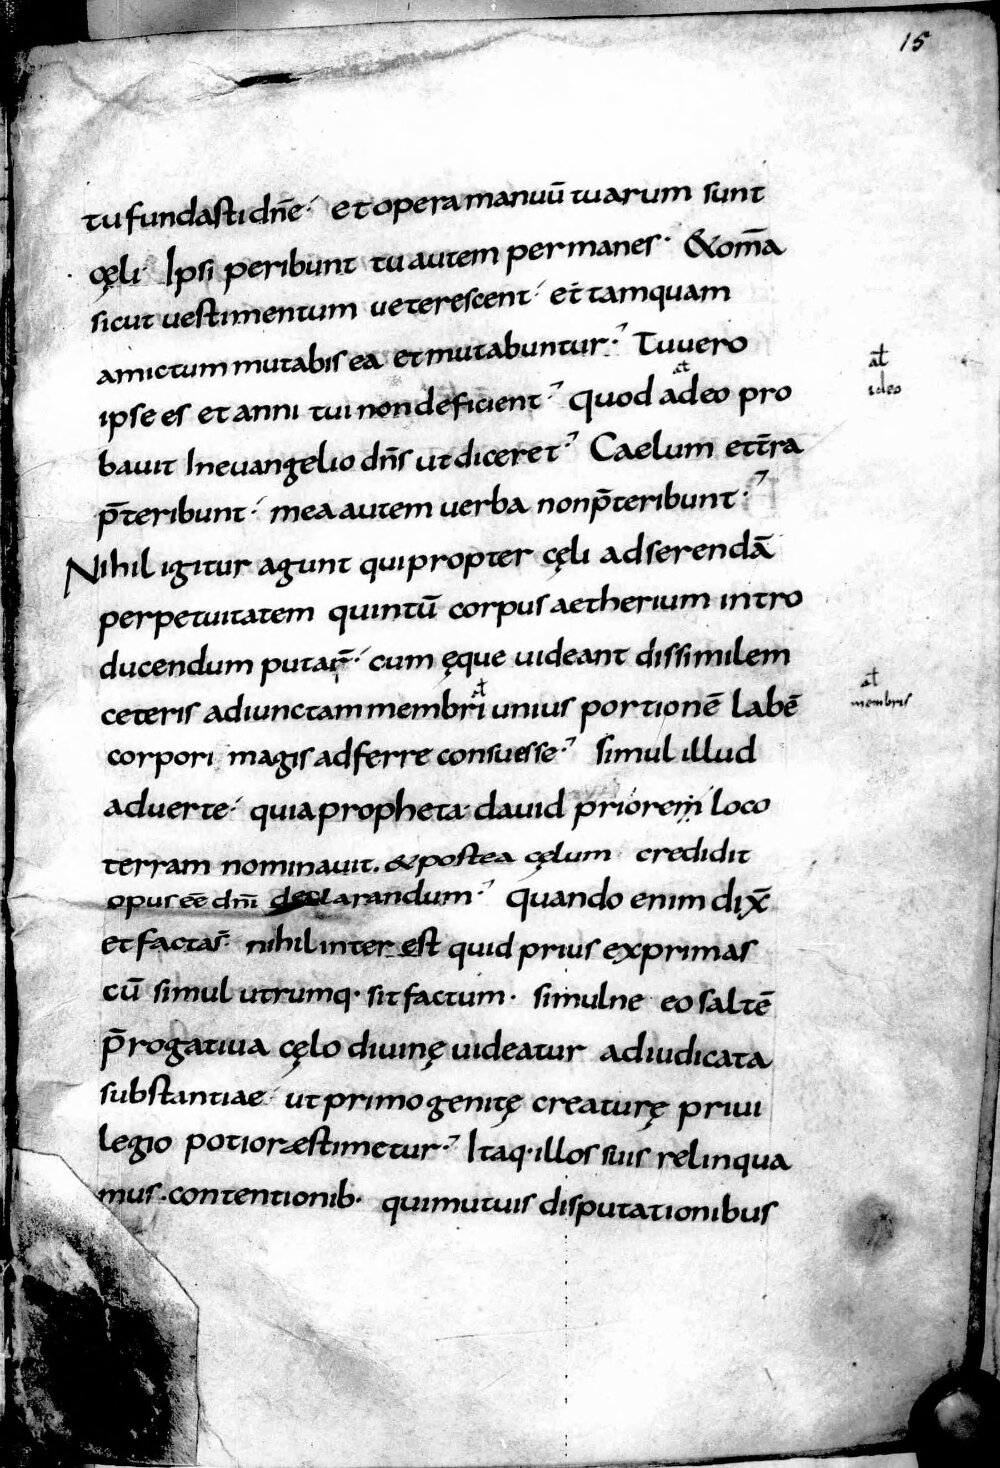 15
tu fundasti dn̄e· et opera manuū tuarum sunt
cęli· Ipsi peribunt tu autem permanes· & om̄a
sicut uestimentum ueterescent· et tamquam
amictum mutabis ea et mutabuntur· Tu uero
ipse es et anni tui non deficient· quod adeo pro
al̄
al̄
ideo
bauit In euangelio dn̄s ut diceret· Caelum et t̄ra
p̄teribunt· mea autem uerba non p̄teribunt·
Nihil igitur agunt qui propter cęli adserendā
perpetuitatem quintū corpus aetherium intro
ducendum putar̄· cum ęque uideant dissimilem
ceteris adiunctam membri unius portionē labē
al̄
al̄
membris
corpori magis adferre consuesse· simul illud
aduerte· quia propheta dauid priorem loco
terram nominauit. & postea cęlum credidit
opus eē dn̄i declarandum· quando enim dix̄
et facta s̄ nihil interest quid prius exprimas
cū simul utrumq· sit factum· simul ne eo saltē
p̄rogatiua cęlo diuinę uideatur adiudicata
substantiae· ut primogenitę creaturę priui
legio potior æstimetur· Itaq· illos suis relinqua
mus· contentionib· qui mutuis disputationibus